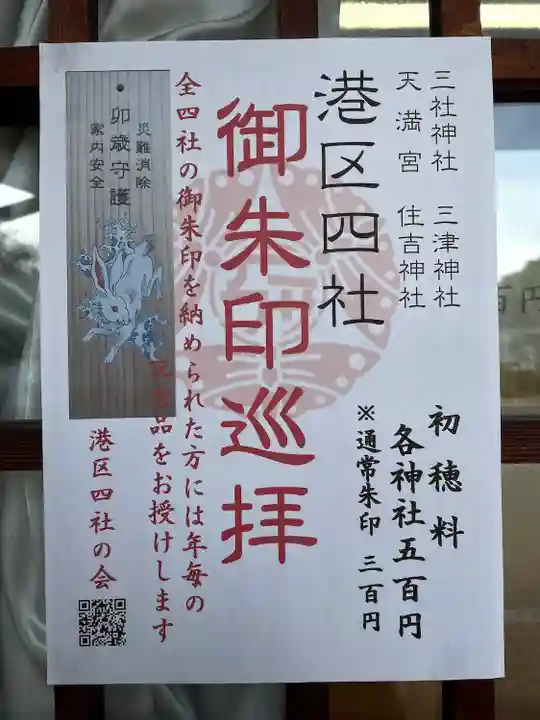 三社神社 三津神社
天満宮 住吉神社
港区四社
御朱印巡拝
初穂料
各神社五百円
※通常朱印 三百円
全四社の御朱印を納められた方には年毎の
品をお授けします
港区四社の会
卯歳守護
災難消除
家内安全
百円